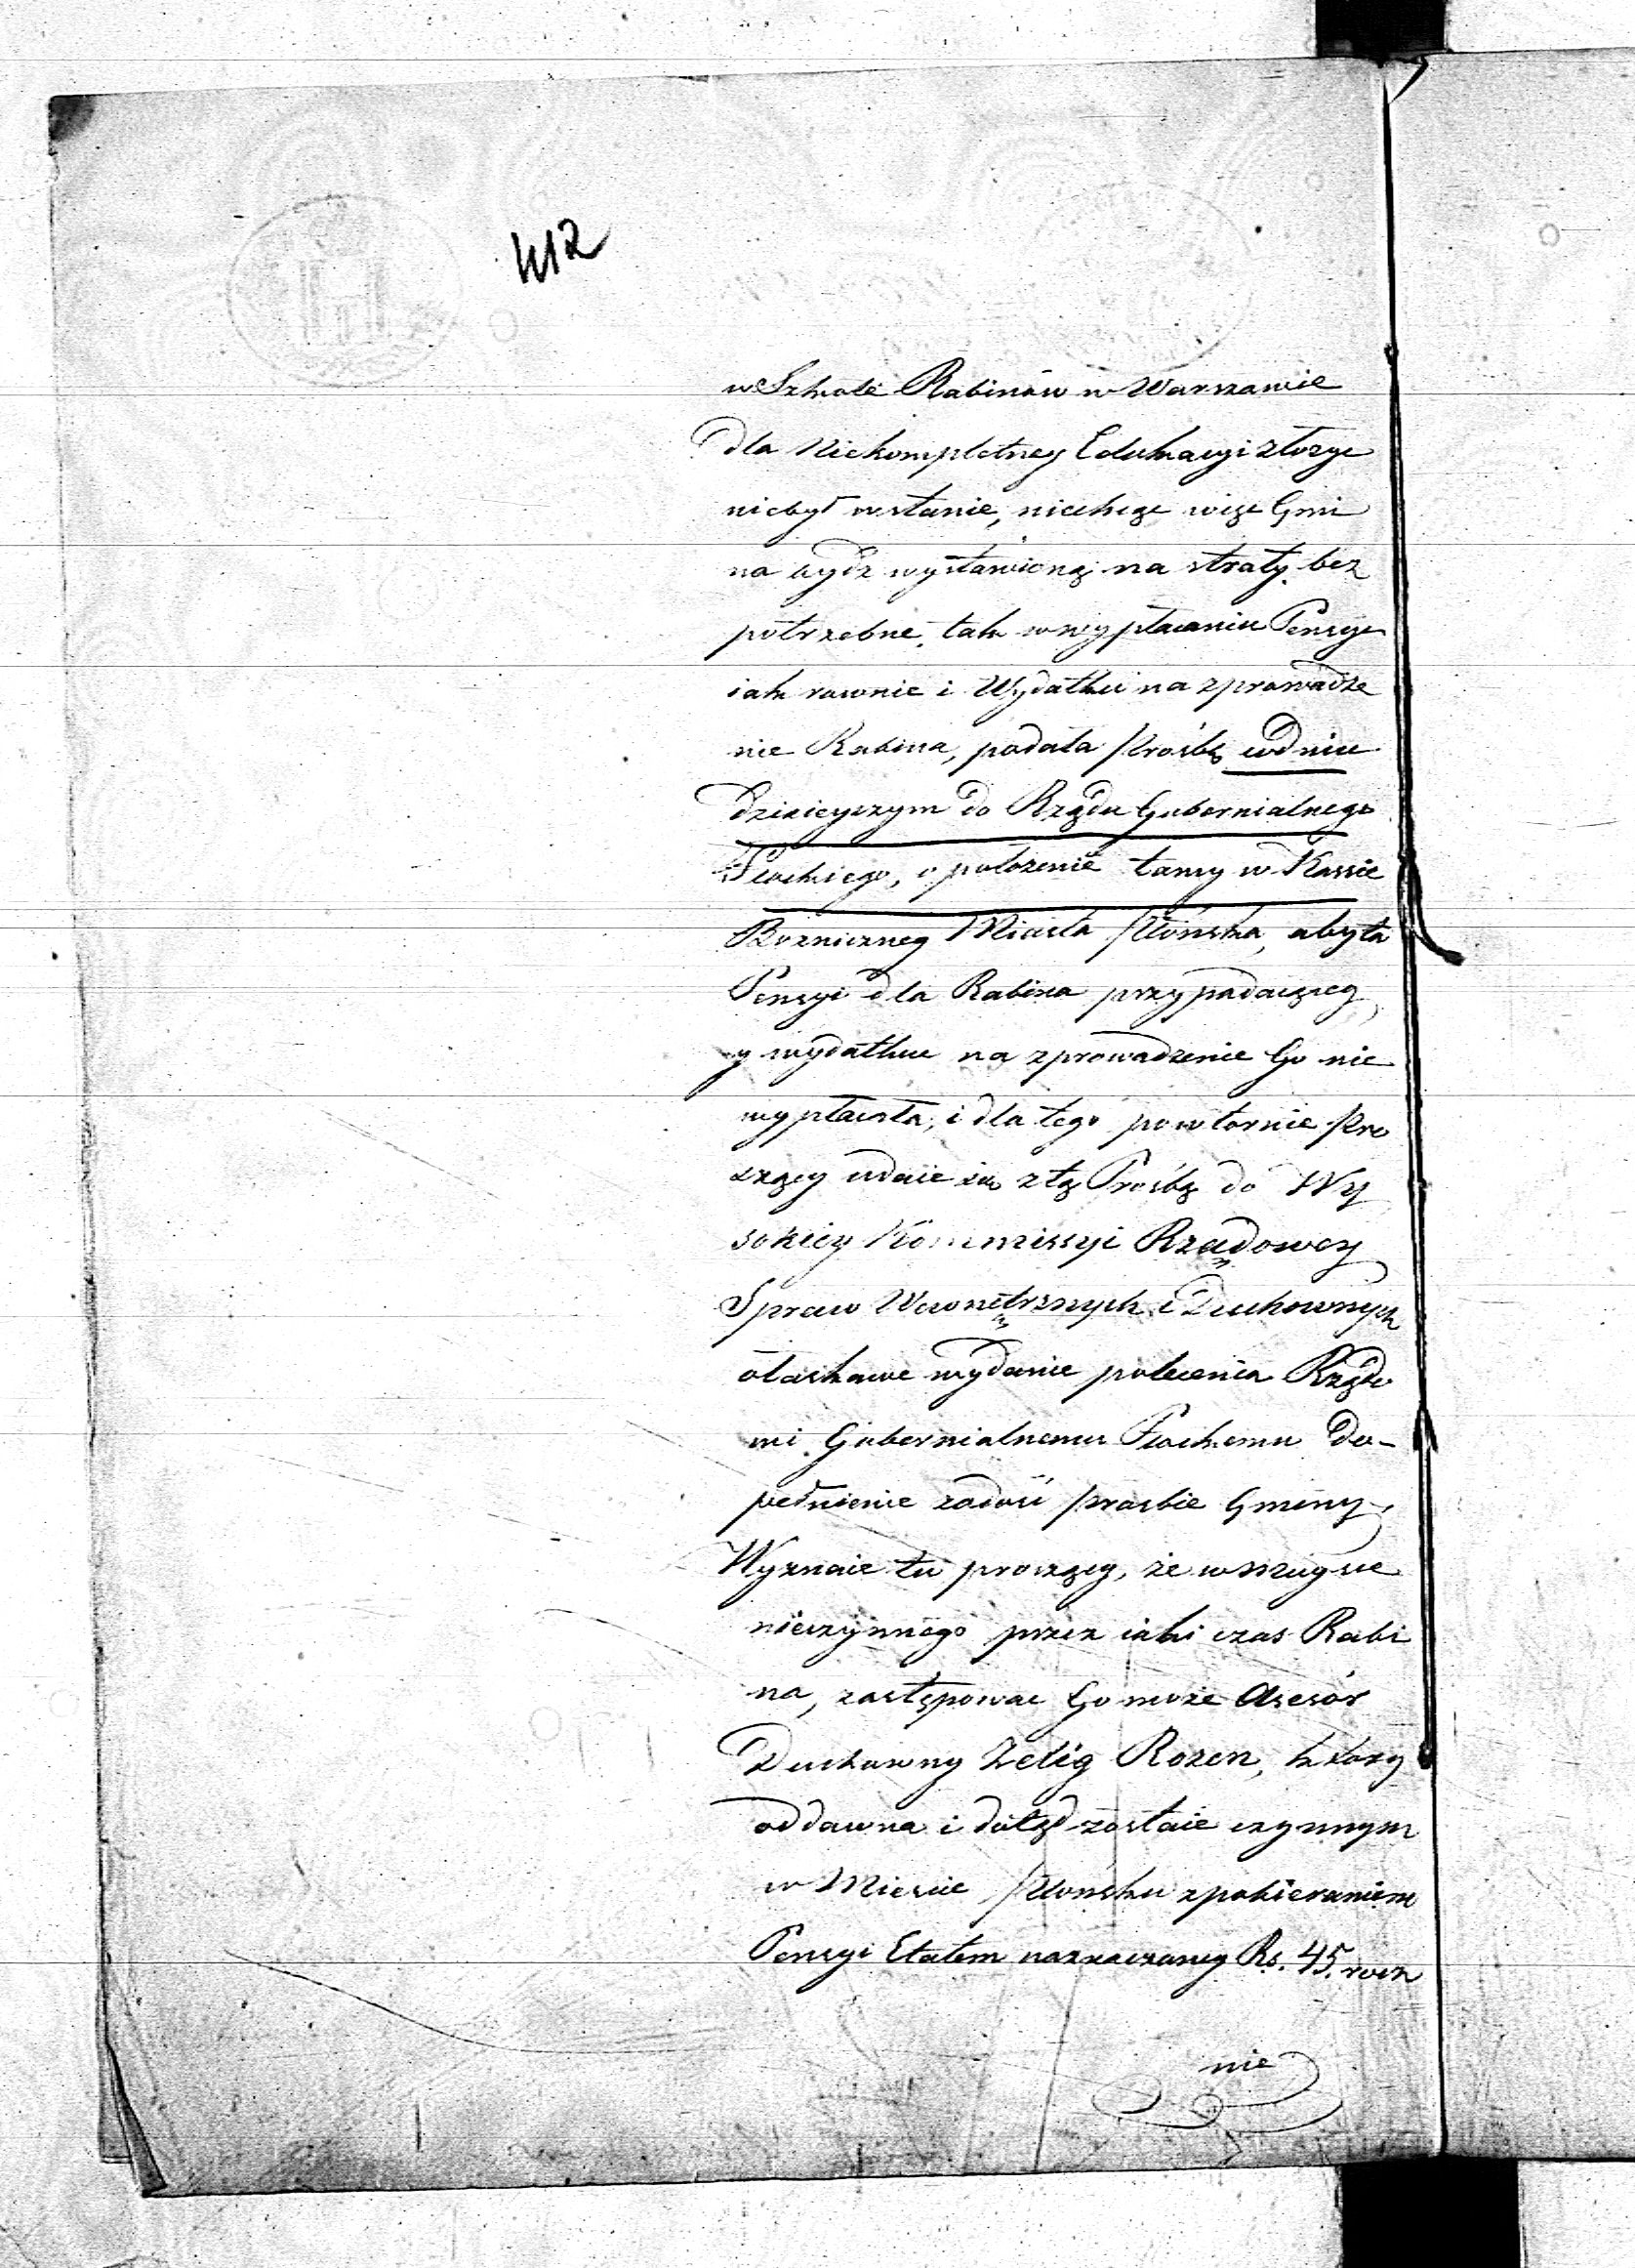 412
w Szkole Rabinów w Warszawie
dla Niekompletney Edukacyi złozyc
niebył wstanie, niechcąc więc Gmi
na bydz wystawioną na straty bez
potrzebne, tak w wypłacaniu Pensye
iak rownie i Wydatku na zprowadze
nie Rabina, podała Prośbę wdniu
dzisieyszym do Rządu Gubernialnego
Płockiego, o położenie tamy w Kassie
Bozniczney Miasta Płońska, abyta
Pensyi dla Rabina przypadaiącey,
y wydatku na zprowadzenie Go nie
wypłacała, i dla tego powtornie Pro
szący udaie się ztą Prośbą do Wy
sokiey Kommissyi Rządowey
Spraw Wewnętrznych i Duchownych
ołaskawe wydanie polecenia Rządo
wi Gubernialnemu Płockemu Do-
pełnienie zadość prosbie Gminy,
Wyznaie tu proszący, że wmieysce
nieczynnego przez iaki czas Rabi
na, zastępowac Go może Asesór
Duchowny Zelig Rozen, który
oddawna i dotąd zostaie czynnym
w Miescie Płońsku zpobieraniem
Pensyi Etatem naznaczoney Rs. 45. rocz
nie